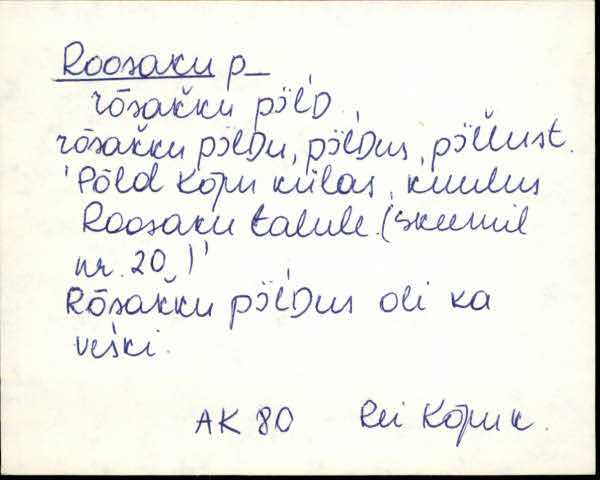 Roosaku p_
rōsakku põlD
rōsakku põlDu, põlDus, põllust.
'Põld Kõpu külas, kuulus
Roosaku talule. (skeemil
nr. 20.)'
Rōsakku põlDus oli ka
veski.
AK 80 Rei Kõpu k.